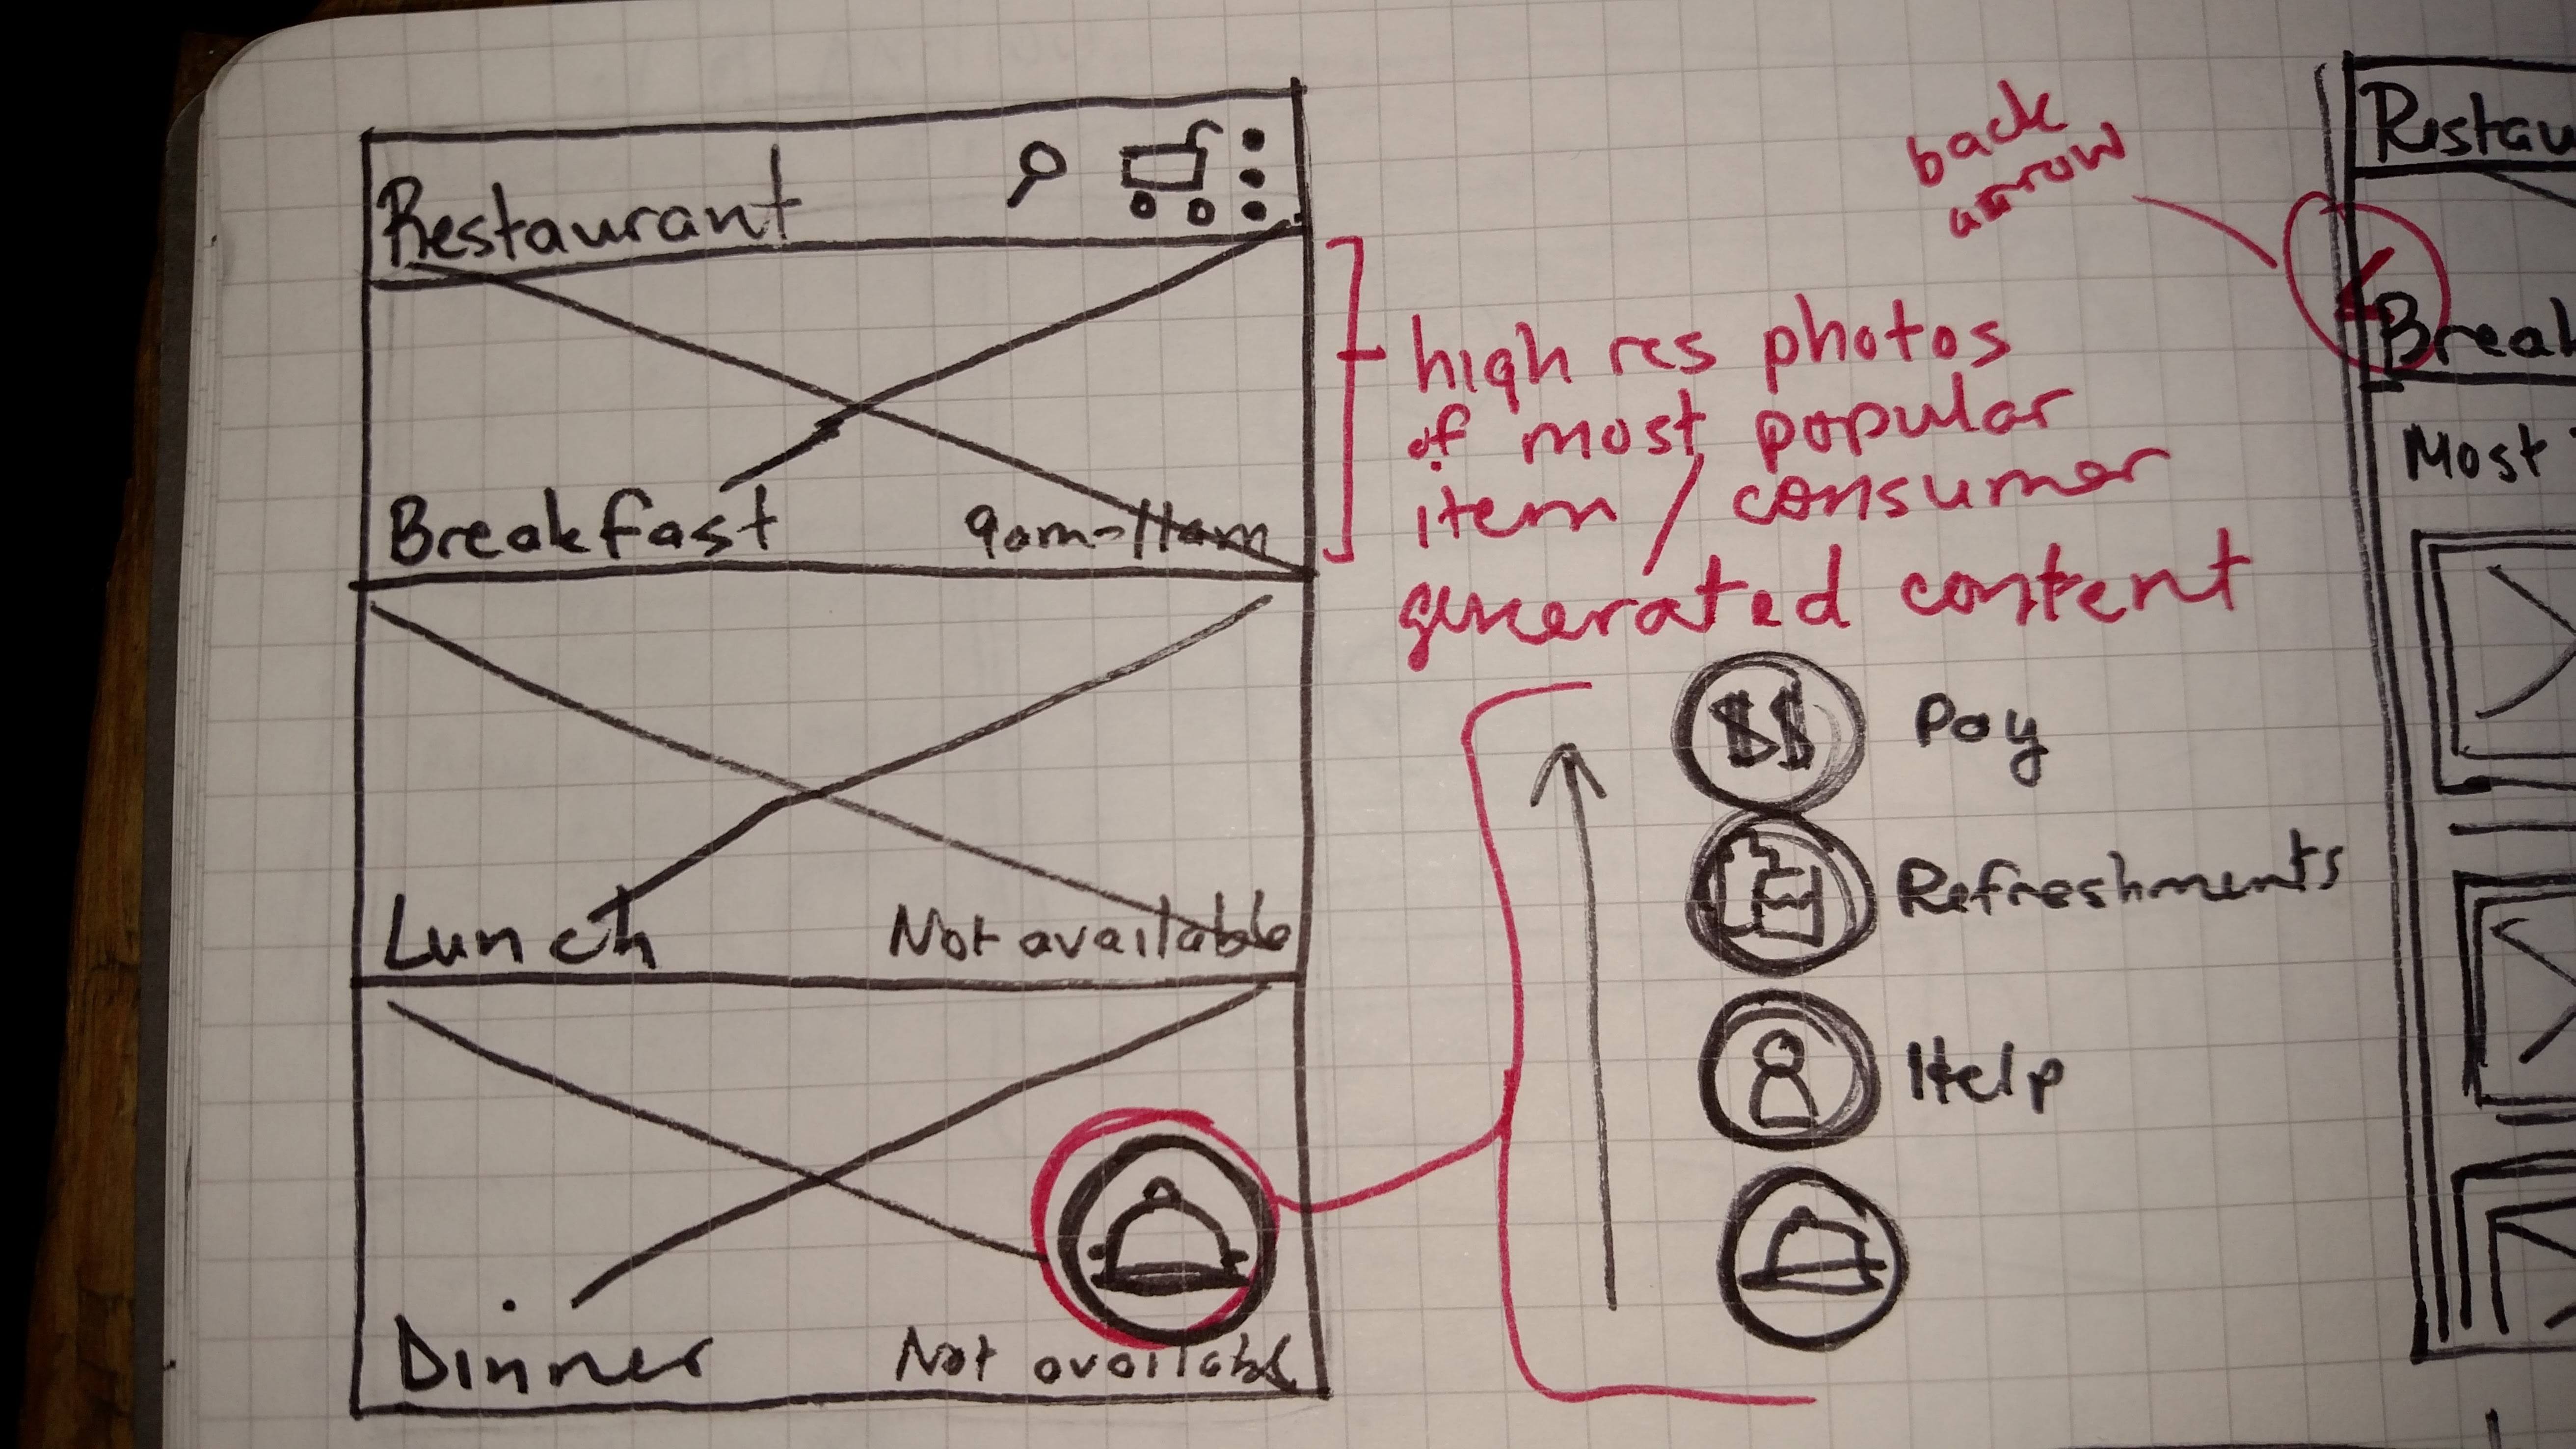 Restaurant
Breakfast 9am-11am
Lunch Not available
Dinner Not available
high res photos
of most popular
item / consumer
generated content
$$ Pay
Refreshments
Help
back
arrow
Restau
<
Break
Most